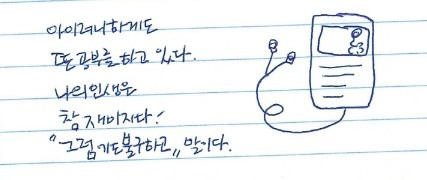 아이러니하게도
또 공부를 하고 있다.
나의 인생은
참 재미지다!
"그럼에도불구하고" 말이다.